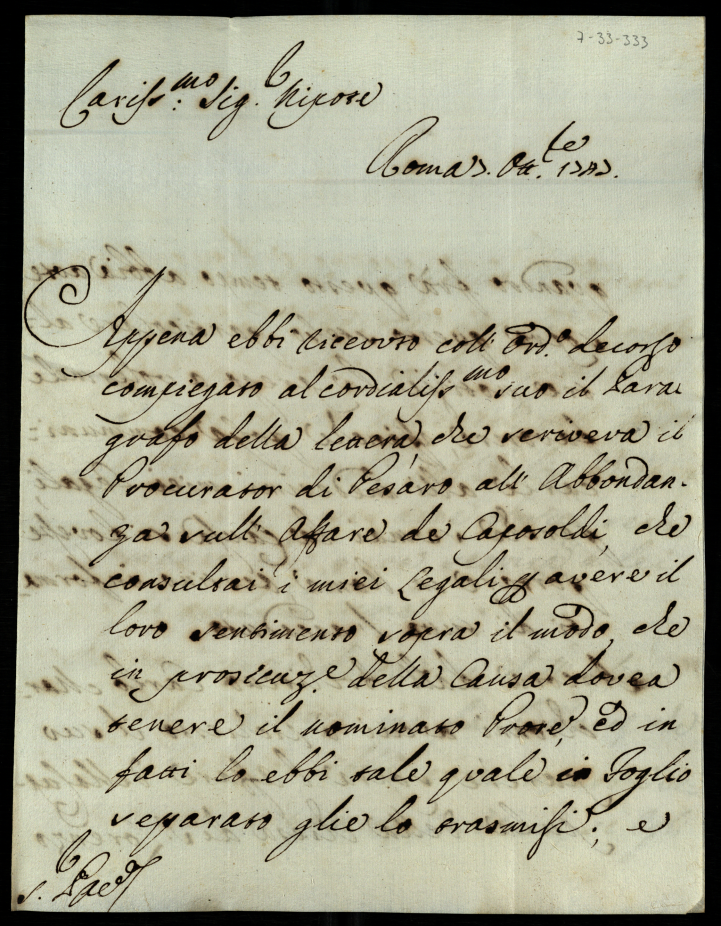 7-33-333
Cariss:mo Sig.r Nipote
Roma 7. Ott.bre 1787.
Appena ebbi ricevuto coll' Ord.o decorso
compiegato al cordialiss.mo suo il Para-
grafo della lettera, che scriveva il
Procurator di Pesaro all' Abbondan-
za sull' Affare de Caposoldi, che
consultai i miei Legali per avere il
loro sentimento sopra il modo, che
in prosieguo della Causa dovea
tenere il nominato Proc.re, ed in
fatti lo ebbi tale quale in Foglio
separato glie lo trasmisi; e